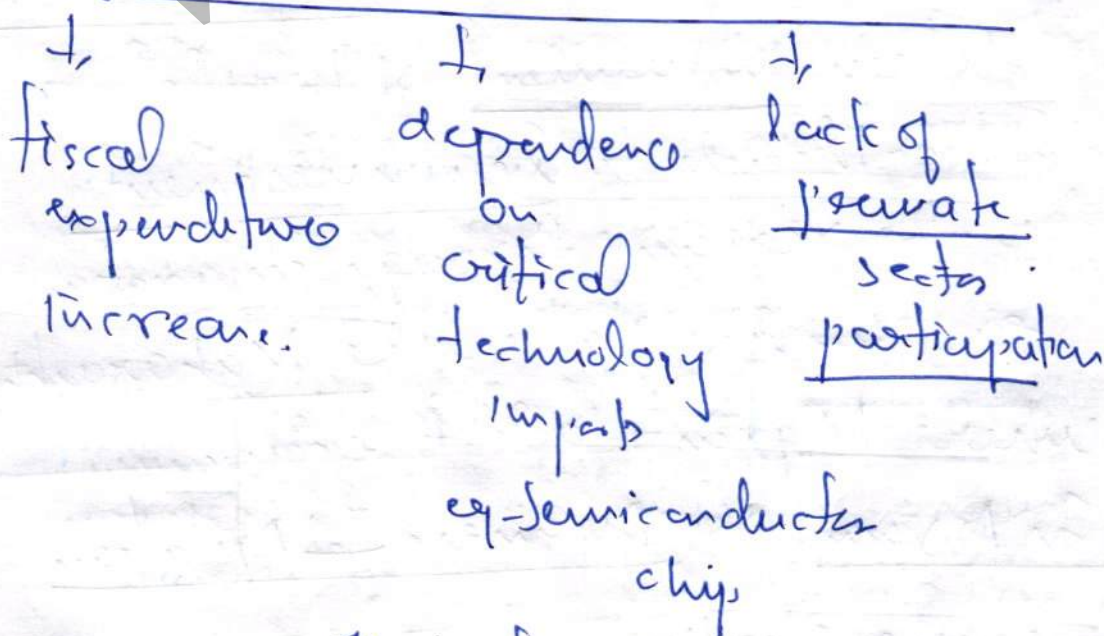 fiscal
expenditure
increase.
dependence
on
critical
technology
imports
eg-semiconductor
chips
lack of
private
sector
participation